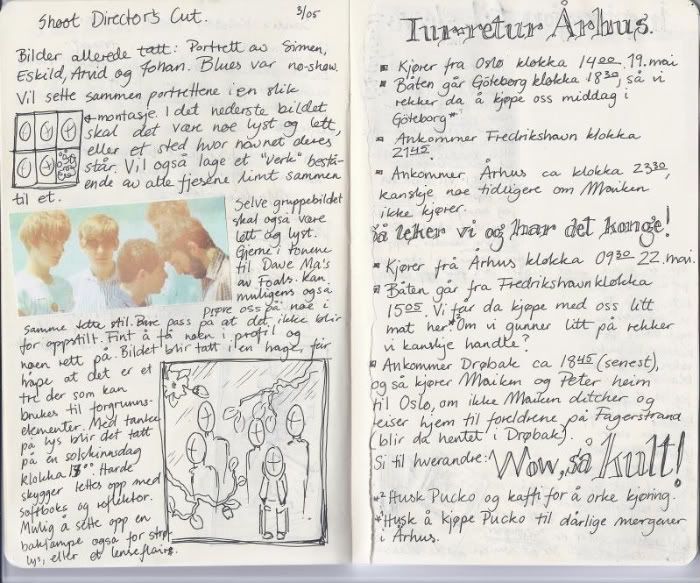 Shoot Director's Cut.
3/05
Bilder allerede tatt: Portrett av Simen,
Eskild, Arvid og Johan. Blues var no-show.
Vil sette sammen portrettene i en slik
montasje. I det nederste bildet
skal det være noe lyst og lett,
eller et sted hvor navnet deres
står. Vil også lage et "verk" bestå-
ende av alle fjesene limt sammen
til et.
Selve gruppebildet
skal også være
lett og lyst.
Gjerne i tonene
til Dave Ma's
av Foals. Kan
muligens også
prøve oss på noe i
samme stil. Bare pass på at det ikke blir
for oppstilt. Fint å få noen i profil og
noen rett på. Bildet blir tatt i en hage, får
håpe at det er et
tre der som kan
brukes til forgrunns-
elementer. Med tanke
på lys blir det tatt
på en solskinnsdag
klokka 00. Harde
skygger lettes opp med
softboks og reflektor.
Mulig å sette opp en
baklampe også for strøt
lys, eller et lenseflare.
Tur-retur Århus.
Kjører fra Oslo klokka 14 00, 19. mai
Båten går Göteborg klokka 18 30, så vi
rekker da å kjøpe oss middag i
Göteborg*
Ankommer Fredrikshavn klokka
21 45.
Ankommer Århus ca klokka 23 30,
kanskje noe tidligere om Maiken
ikke kjører.
Så leker vi og har det konge!
Kjører frå Århus klokka 09 30 22. mai.
Båten går fra Fredrikshavn klokka
15 05. Vi får da kjøpe med oss litt
mat her* Om vi gunner litt på rekker
vi kanskje handle?
Ankommer Drøbak ca 18 45 (senest),
og så kjører Maiken og Peter heim
til Oslo, om ikke Maiken ditcher og
reiser hjem til foreldrene på Fagerstrand
(blir da hentet i Drøbak).
Si til hverandre: Wow, så kult!
*² Husk Pucko og kaffi for å orke kjøring.
*¹ Husk å kjøpe Pucko til dårlige morgener
i Århus.